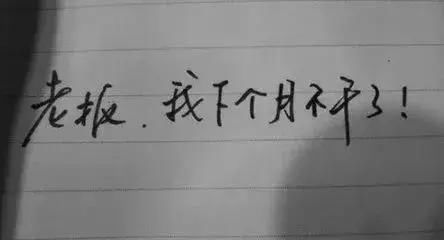 老板．我下个月不干了！